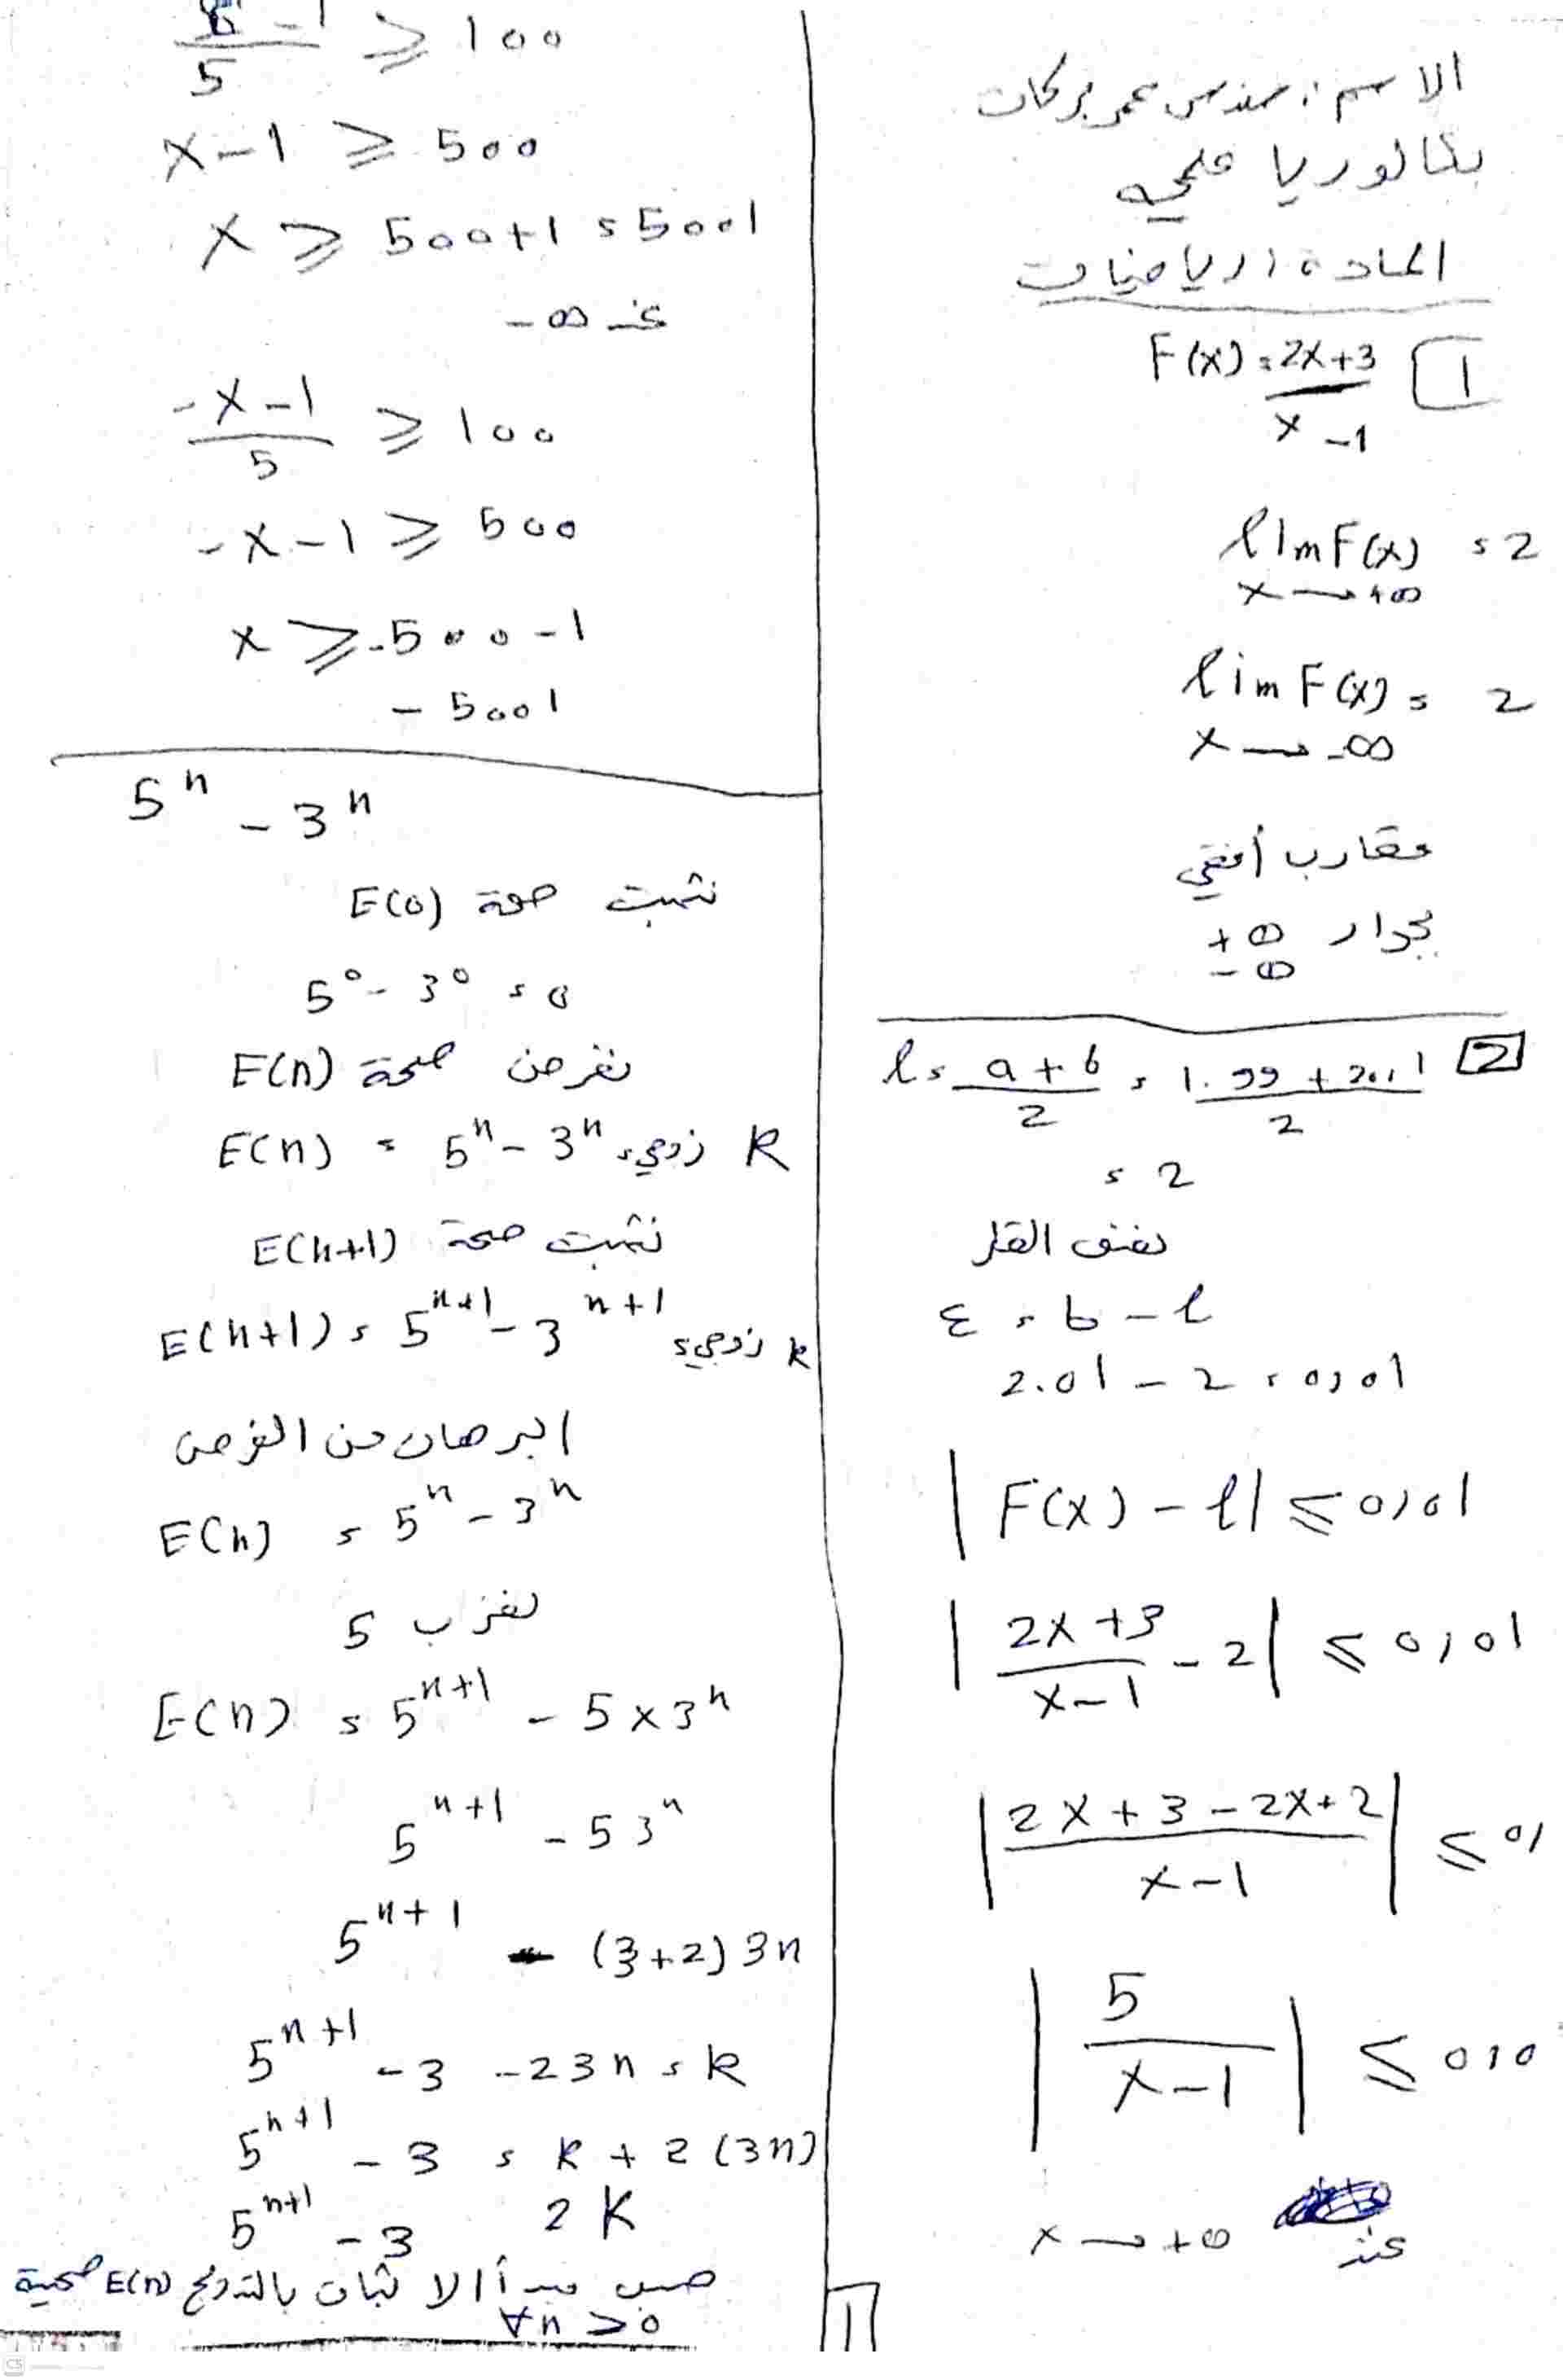 الاسم: مندس عمر بركات
بكالوريا علميه
المادة: رياضيات
F(x) = 2x+3 / x-1 [1]
lim F(x) = 2
x → +∞
lim F(x) = 2
x → -∞
مقارب أفقي
بجوار +∞
-∞
l = a+b / 2 = 1.99 + 2.01 / 2 [2]
= 2
نصف القطر
ε = b - l
2.01 - 2 = 0,01
|F(x) - l| ≤ 0,01
|2x+3 / x-1 - 2| ≤ 0,01
|2x+3-2x+2 / x-1| ≤ 01
|5 / x-1| ≤ 0,0
عند x → +∞
x-1 / 5 ≥ 100
x-1 ≥ 500
x ≥ 500+1 = 5001
عند -∞
-x-1 / 5 ≥ 100
-x-1 ≥ 500
x ≥ -500-1
-5001
5ⁿ - 3ⁿ
نثبت صحة E(0)
5⁰ - 3⁰ = 0
نفرض صحة E(n)
E(n) = 5ⁿ - 3ⁿ = زوجي k
نثبت صحة E(n+1)
E(n+1) = 5ⁿ⁺¹ - 3ⁿ⁺¹ = زوجي k
البرهان من الفرض
E(n) = 5ⁿ - 3ⁿ
نضرب 5
E(n) = 5ⁿ⁺¹ - 5×3ⁿ
5ⁿ⁺¹ - 5 3ⁿ
5ⁿ⁺¹ - (3+2) 3n
5ⁿ⁺¹ - 3 - 2 3n = k
5ⁿ⁺¹ - 3 = k + 2 (3n)
5ⁿ⁺¹ - 3 2K
حسب مبدأ الاثبات بالتدريج E(n) صحيحة
∀n ≥ 0
1
CS